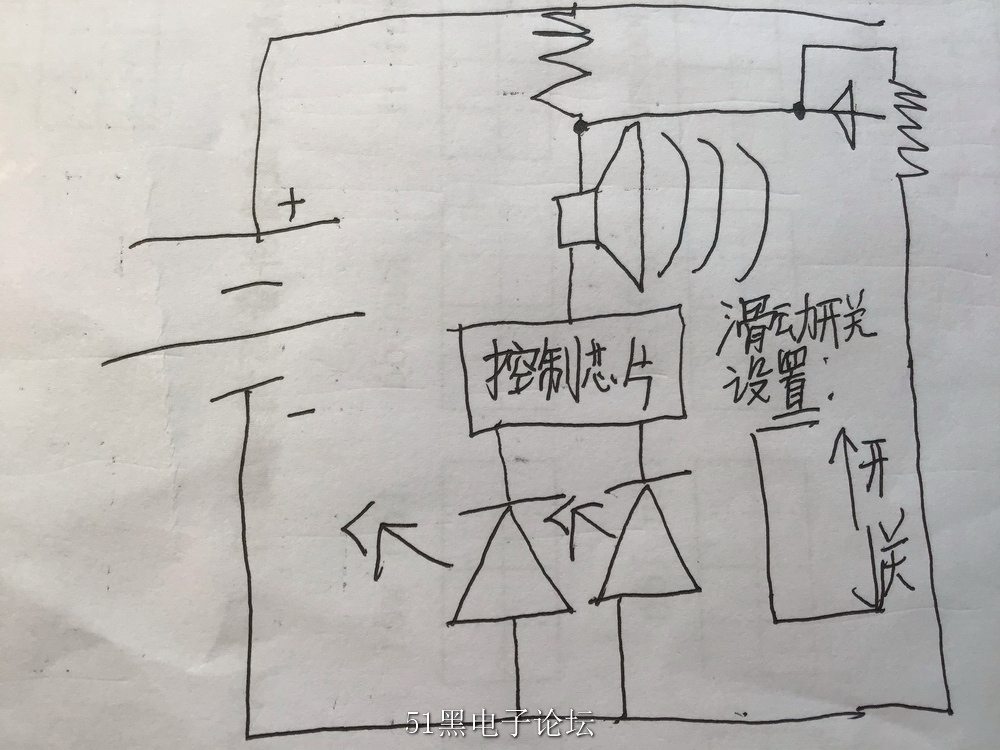 +
控制芯片
滑动开关
设置:
开
关
-
51黑电子论坛